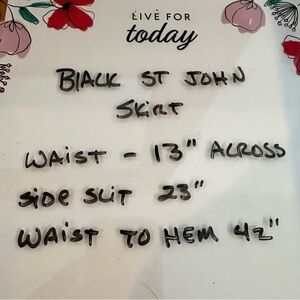 LIVE FOR
today
BlACK ST JOHN
SKIRT
WAIST - 13" ACROSS
SIDE SLIT 23"
WAIST TO HEM 42"